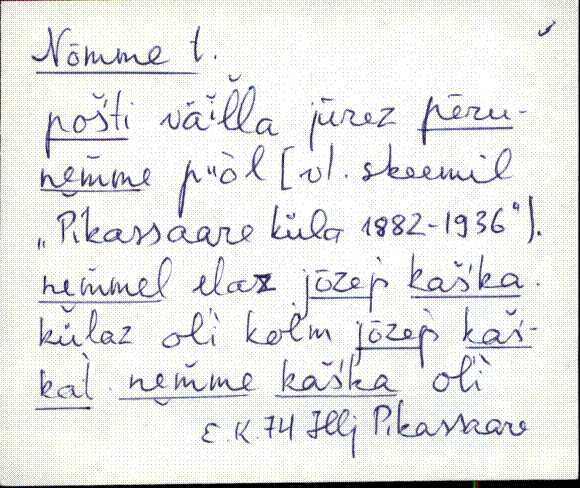 Nõmme t.
pošti väil̆l̆a jūrez pēru-
nem̆me p"òl [vl. skeemil
„Pikassaare küla 1882-1936").
nem̆mel elaz jōzep kaška.
kŭlaz oli kolm jōzep kaš-
kat. nem̆me kaška oli
E.K. 74 Hlj Pikassaare